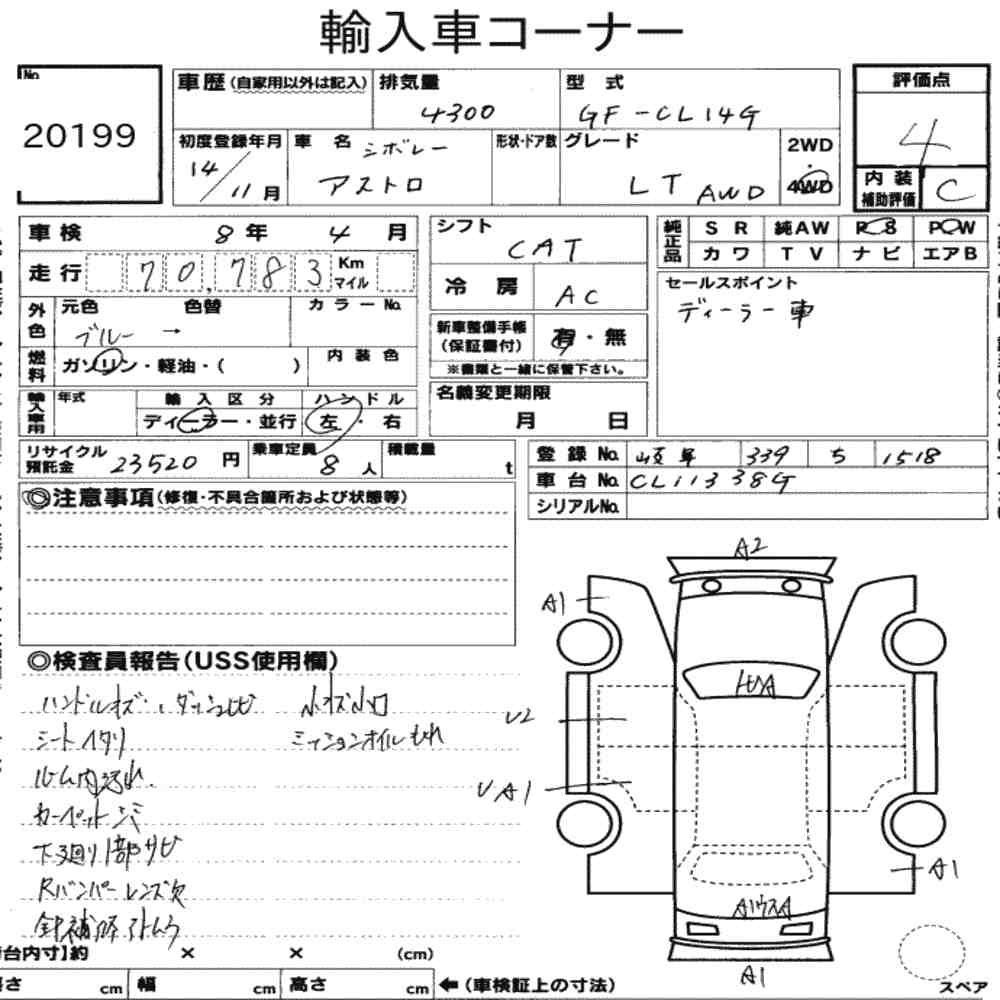 輸入車コーナー
No.
20199
車歴(自家用以外は記入)
排気量
4300
型 式
GF-CL14G
評価点
4
内装
補助評価
C
初度登録年月
14/11月
車 名
シボレー
アストロ
形状・ドア数
グレード
LT AWD
2WD
・
4WD
車検
8年 4月
走行
70,783
Km
マイル
シフト
CAT
冷 房
AC
純正品
SR
純AW
PS
PW
カワ
TV
ナビ
エアB
セールスポイント
ディーラー車
外色
元色
色替
カラーNo.
ブルー →
燃料
ガソリン・軽油・( )
内装色
新車整備手帳
(保証書付)
有・無
※書類と一緒に保管下さい。
輸入車用
年式
輸入区分
ハンドル
ディーラー・並行
左・右
名義変更期限
月 日
リサイクル
預託金
23520 円
乗車定員
8人
積載量
t
登録No.
岐阜 339 ち 1518
車台No.
CL11338G
シリアルNo.
◎注意事項(修復・不具合箇所および状態等)
◎検査員報告(USS使用欄)
ハンドルキズ・ダッシュヒビ
小キズ小凹
シートイタリ
ミッションオイルもれ
ルーム内汚れ
カーペットシミ
下廻り1部サビ
Rバンパーレンズ欠
A2
A1
U2
UA1
A1
A1
台内寸】約
×
×
(cm)
さ
cm
幅
cm
高さ
cm
←(車検証上の寸法)
スペア